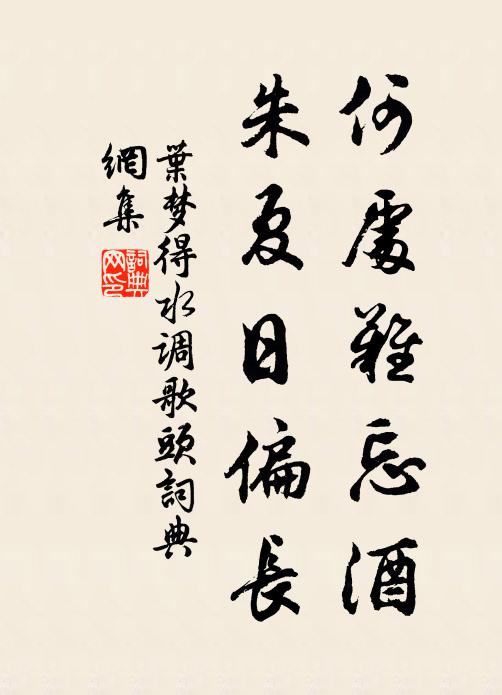 何處難忘酒
朱夏日偏長
葉梦得水调歌頭詞典
網集
詞典
网印